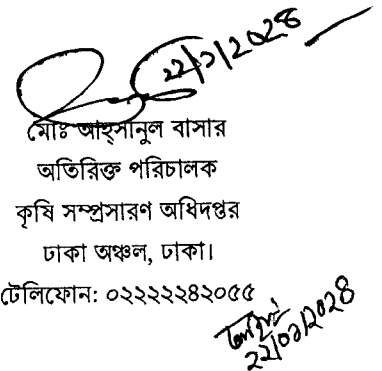 ২২/১/২০২৪
মোঃ আহ্সানুল বাসার
অতিরিক্ত পরিচালক
কৃষি সম্প্রসারণ অধিদপ্তর
ঢাকা অঞ্চল, ঢাকা।
টেলিফোন: ০২২২২২৪২০৫৫
২২/০১/২০২৪